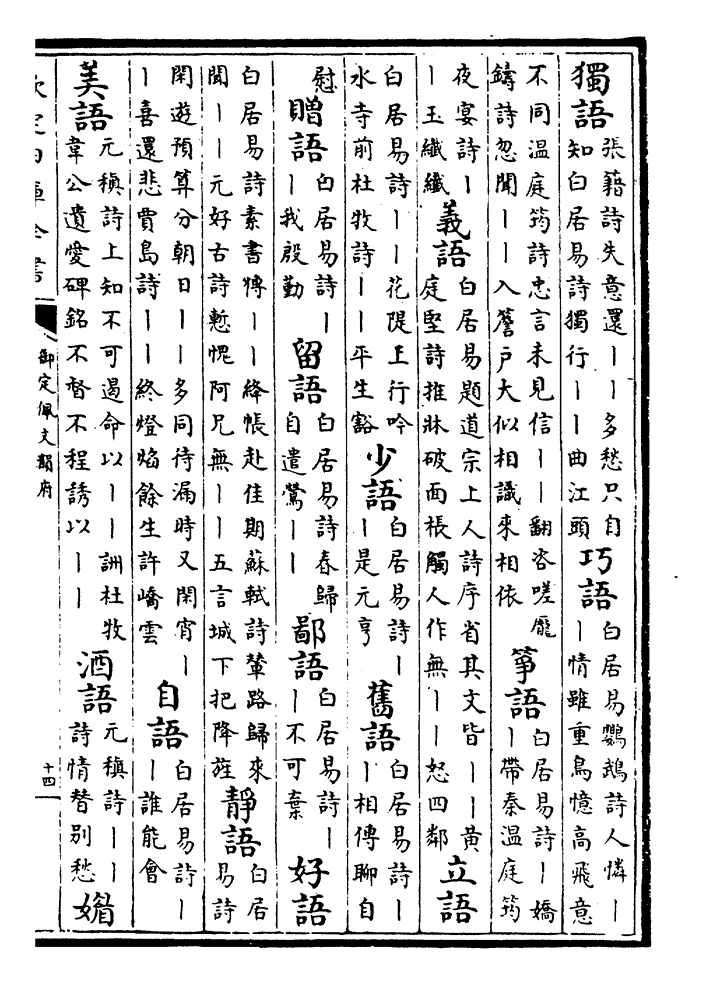 獨語張籍詩失意還丨丨多愁只自知白居易詩獨行丨丨曲江頭巧語白居易鸚鵡詩人憐丨丨情雖重鳥憶高飛意
不同温庭筠詩忠言未見信丨丨翻咨嗟龐鑄詩忽聞丨丨入簷戶大似相識來相依箏語白居易詩丨嬌丨帶秦温庭筠
夜宴詩丨丨玉纖纖義語白居易題道宗上人詩序省其文皆丨丨黄庭堅詩推牀破面棖觸人作無丨丨怒四鄰立語
白居易詩丨丨花隄上行吟水寺前杜牧詩丨丨平生豁少語白居易詩丨丨是元亨舊語白居易詩丨丨相傳聊自
慰贈語白居易詩丨丨我殷勤留語白居易詩春歸自遣鶯丨丨鄙語白居易詩丨丨不可棄好語
白居易詩素書傳丨丨絳帳赴佳期蘇軾詩輦路歸來聞丨丨元好古詩慙愧阿兄無丨丨五言城下把降旌靜語白居易詩
閑遊預算分朝日丨丨多同待漏時又閑宵丨丨喜還悲賈島詩丨丨終燈焰餘生許嶠雲自語白居易詩丨丨誰能會
美語元稹詩上知不可遏命以丨丨詶杜牧韋公遺愛碑銘不督不程誘以丨丨酒語元稹詩丨丨詩情替別愁媚
欽定四庫全書
御定佩文韻府
十四